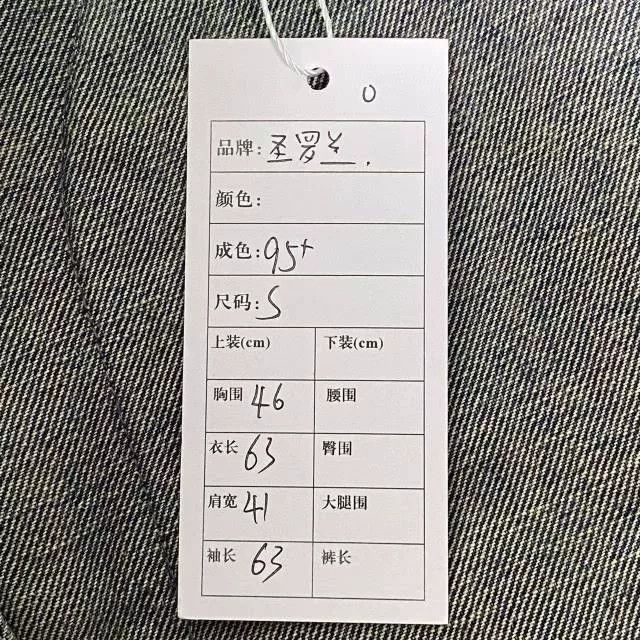 0
品牌:圣罗兰.
颜色:
成色:95+
尺码:S
上装(cm) 下装(cm)
胸围 46 腰围
衣长 63 臀围
肩宽 41 大腿围
袖长 63 裤长